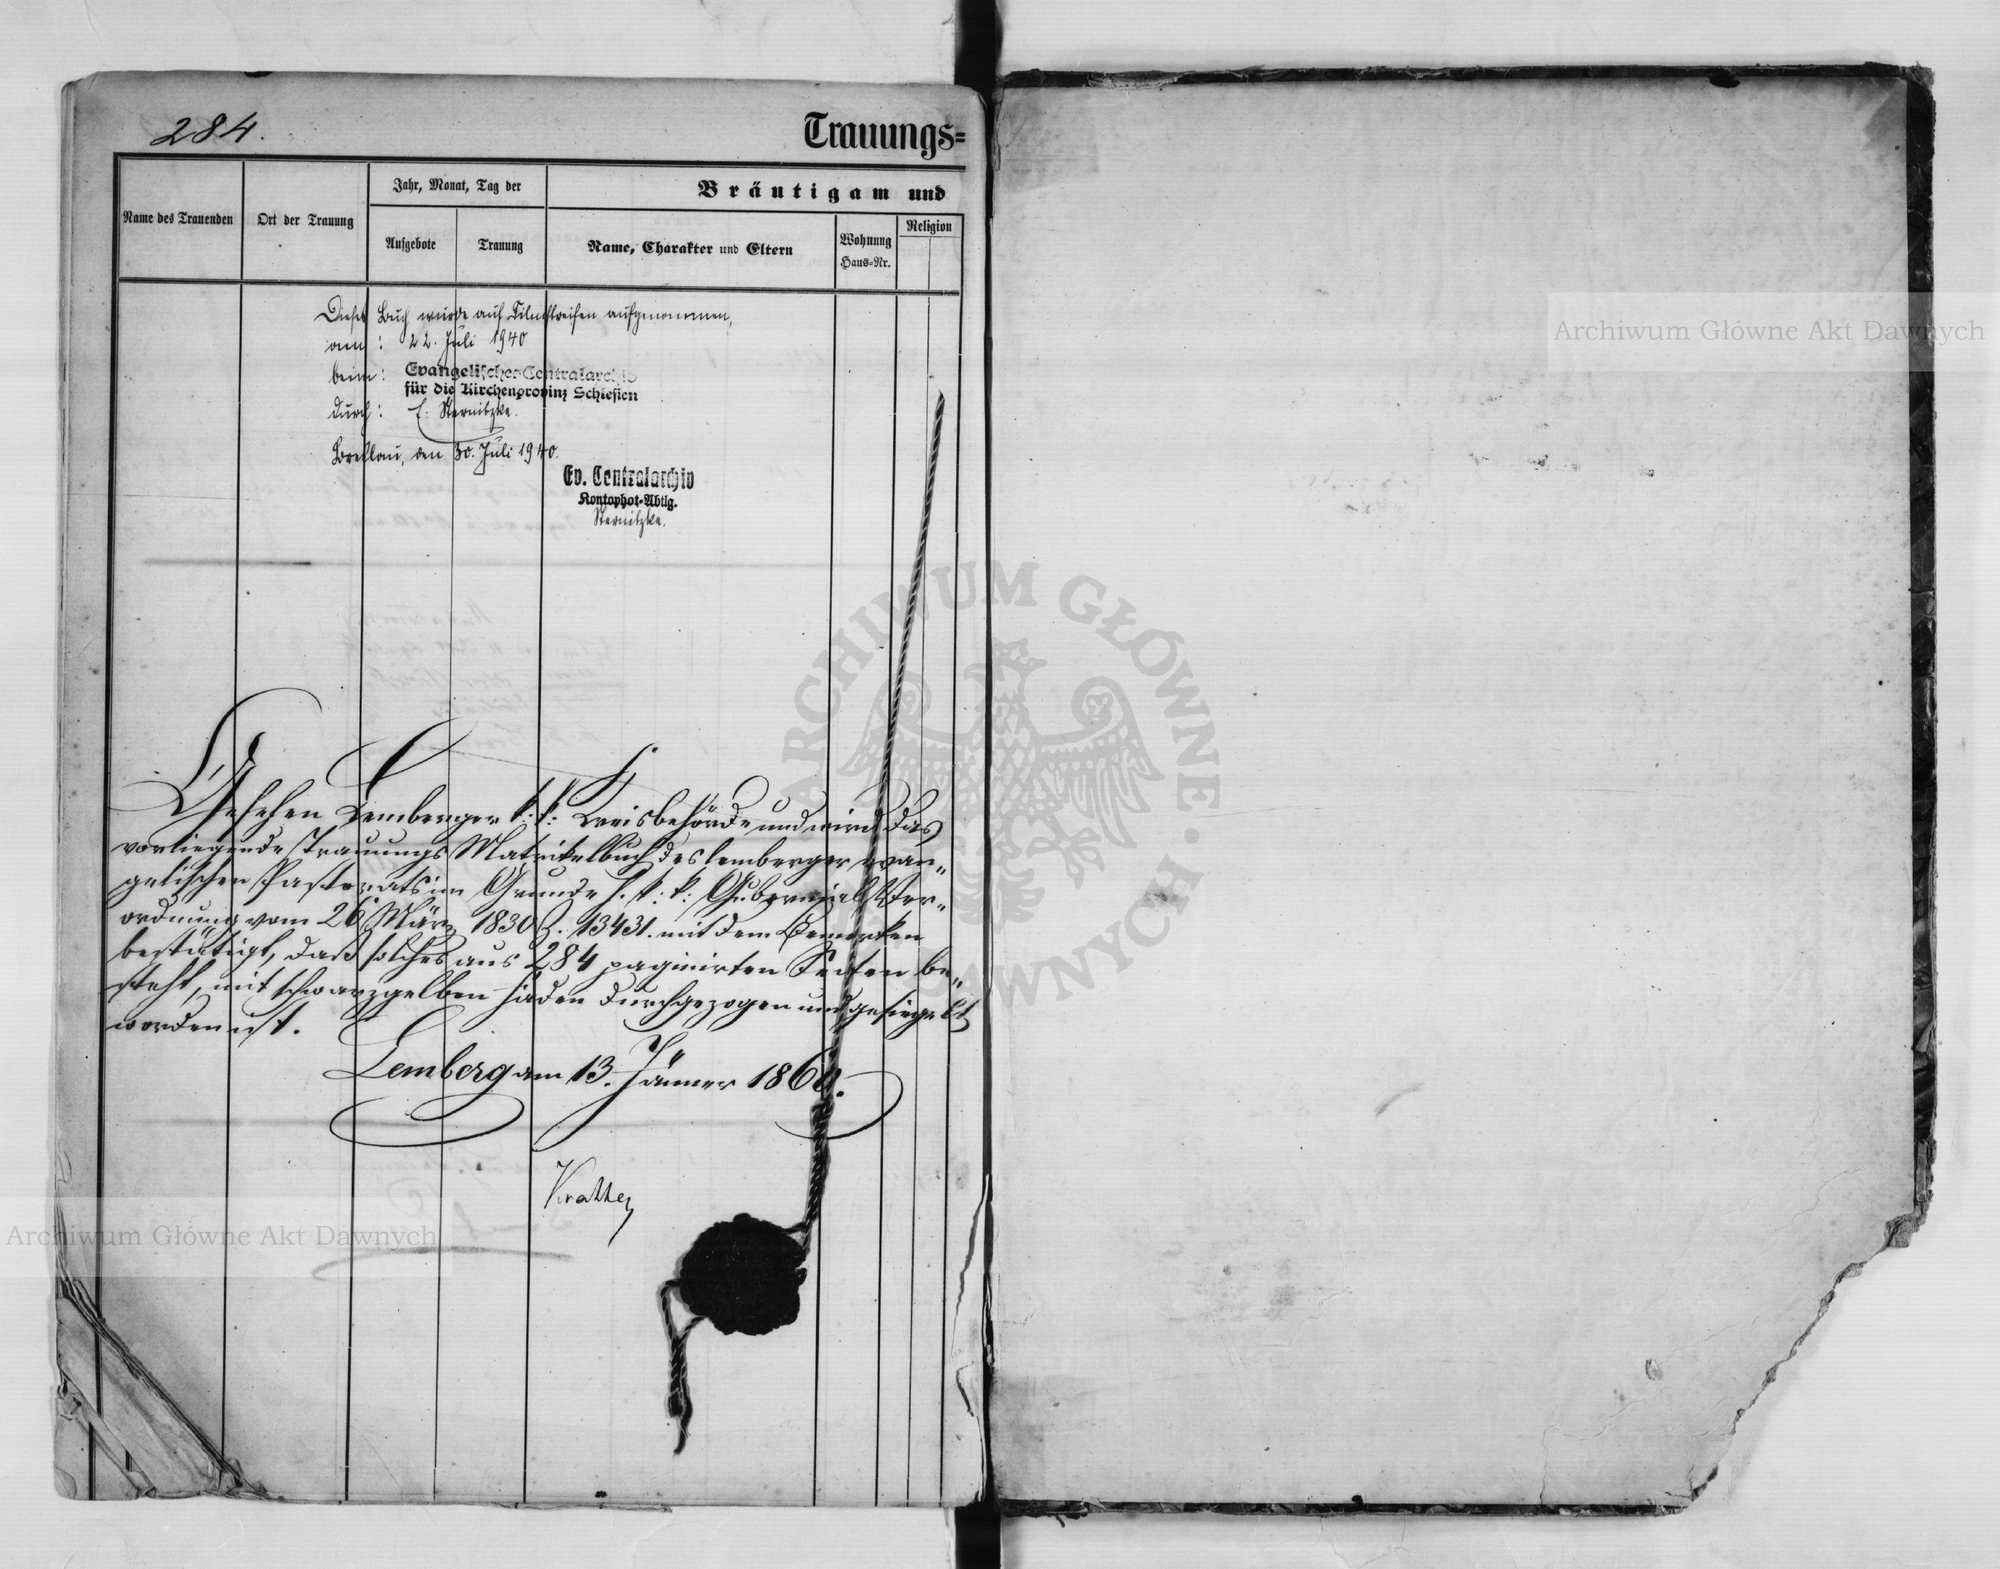 284.
Trauungs=
Name des Trauenden
Ort der Trauung
Jahr, Monat, Tag der
Aufgebote
Trauung
Bräutigam und
Name, Charakter und Eltern
Wohnung
Haus=Nr.
Religion
Dieses Buch wurde auf Filmstreifen aufgenommen,
am: 22. Juli 1940
beim: Evangelisches Centralarchiv
für die Kirchenprovinz Schlesien
durch: E. Sternitzke.
Breslau, den 30. Juli 1940.
Ev. Centralarchiv
Kontophot=Abtlg.
Sternitzke.
Gesehen Lemberger k: k: Kreisbehörde und wird das
vorliegende Trauungs Matrikelbuch des lemberger evan„
gelischen Pastorats im Grunde h. k: k: Gubernial Ver„
ordnung vom 26 März 1830 Z. 13431. mit dem Bemerken
bestätigt, daß solches aus 284 paginirten Seiten be„
steht, mit schwarzgelben Fäden durchgezogen und gesiegelt
worden ist.
Lemberg am 13. Jänner 1860.
Kratter
Archiwum Główne Akt Dawnych
Archiwum Główne Akt Dawnych
ARCHIWUM GŁÓWNE · AKT DAWNYCH